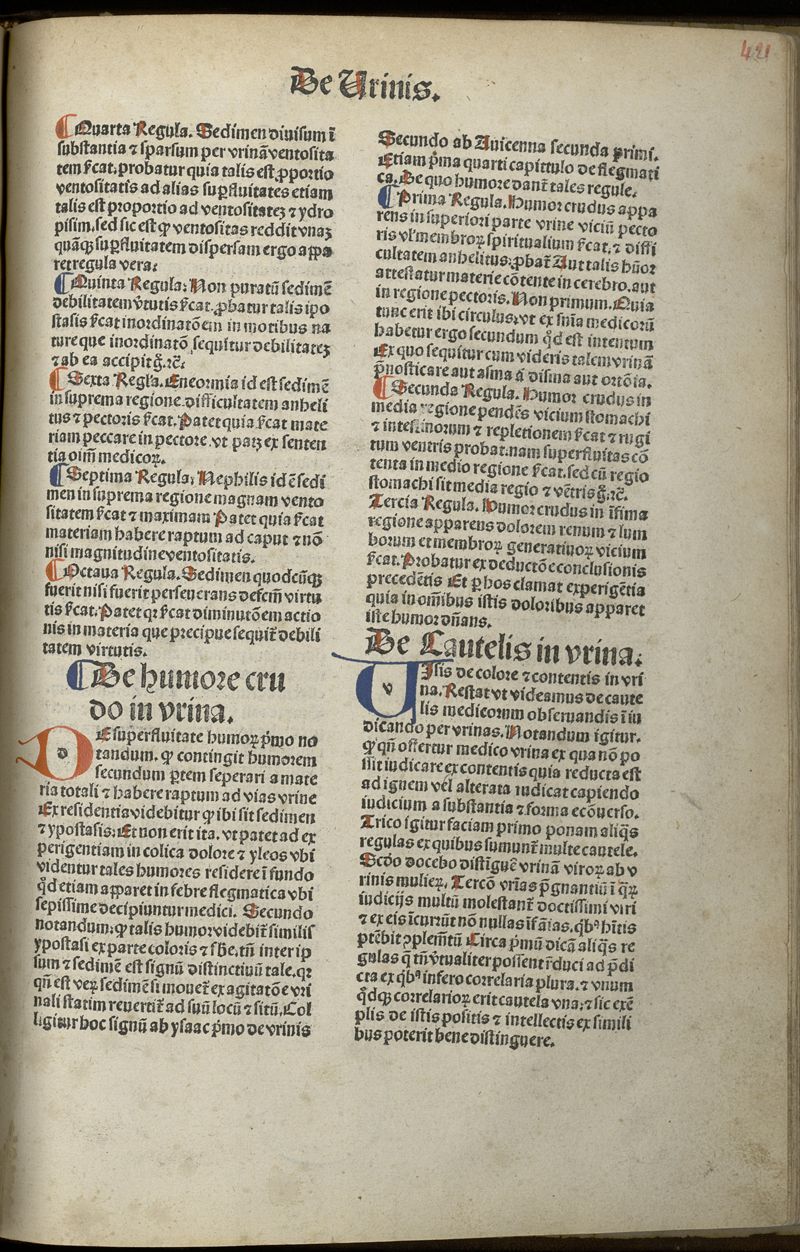 421
De Urinis.
¶Quarta Regula. Sedimen diuisum ī
substantia ⁊ sparsum per vrinā ventosita
tem ſ̄cat. probatur quia talis est ꝓportio
ventositatis ad alias suꝑfluitates etiam
talis est proportio ad ventositateʒ ⁊ ydro
pisim. sed sic est ꝙ ventositas reddit vnaʒ
quāqʒ suꝑfluitatem disꝑsam ergo appa
ret regula vera.
¶Quinta Regula. Non puratū sedimē
debilitatem v̄tutis ſ̄cat. ꝓbatur talis ipo
stasis ſ̄cat inordinatōem in motibus na
ture que inordinatō sequitur debilitateʒ
⁊ ab ea accipit̄ g̃. ⁊c̄.
¶Sexta Regl̄a. Eneormia id est sedimē
in suprema regione. difficultatem anheli
tus ⁊ pectoris ſ̄cat. Patet quia ſ̄cat mate
riam peccare in pectore. vt patʒ ex senten
tia oīm medicoꝝ.
¶Septima Regula. Nephilis id ē sedi
men in suprema regione magnam vento
sitatem ſ̄cat ⁊ maximam Patet quia ſ̄cat
materiam habere raptum ad caput ⁊ nō
nisi magnitudine ventositatis.
¶Octaua Regula. Sedimen quodcūqʒ
fuerit nisi fuerit perseuerans defcm̄ virtu
tis ſ̄cat. Patet qꝛ ſ̄cat diminutōem actio
nis in materia que precipue sequit̄ debili
tatem virtutis.
¶De humore cru
do in vrina.
DE superfluitate humoꝝ p̄mo no
tandum. ꝙ contingit humorem
secundum ꝑtem seperari a mate
ria totali ⁊ habere raptum ad vias vrine
Ex residentia videbitur ꝙ ibi sit sedimen
⁊ ypostasis. Et non erit ita. vt patet ad ex
perigentiam in colica dolore ⁊ yleos vbi
videntur tales humores residere ī fundo
qd̄ etiam apparet in febre flegmatica vbi
sepissime decipiuntur medici. Secundo
notandum. ꝙ talis humor videbit̄ similis
ypostasi ex parte coloris ⁊ sbē. tn̄ inter ip
sum ⁊ sedimē est signū distinctiuū tale. qꝛ
qn̄ est veꝝ sedimē si mouet̄ ex agitatōe vri
nali statim reuertit̄ ad suū locū ⁊ sitū. Col
ligitur hoc signū ab ysaac p̄mo de vrinis
Secundo ab Auicenna secunda primi.
Etiam p̄ma quarti capittulo de flegmati
ca. De quo humore dant̄ tales regule.
¶Prima Regula. Humor crudus appa
rens in superiori parte vrine viciū pecto
ris vl̄ membroꝝ spiritualium ſ̄cat. ⁊ diffi
cultatem anhelitus. ꝓbat̄ Aut talis hūor
attestatur materie cōtente in cerebro. aut
in regione pectoris. Non primum. Quia
tunc erit ibi circulus. vt ex sn̄ia medicorū
habetur ergo secundum qd̄ est intentum
Ex quo sequitur cum videris talem vrinā
p̄nosticare aut asma aut disma aut ortōia.
¶Secunda Regula. Humor crudus in
media regione pendēs vicium stomachi
⁊ intestinorum ⁊ repletionem ſ̄cat ⁊ rugi
tum ventris probat. nam superfluitas cō
tenta in medio regione ſ̄cat. sed cū regio
stomachi sit media regio ⁊ vētris g̃. ⁊c̄.
Tercia Regula. Humor crudus in īfima
regione apparens dolorem renum ⁊ lum
borum et membroꝝ generatiuoꝝ vicium
ſ̄cat. Probatur ex deductōe cōclusionis
precedētis Et ꝑ hos clamat experigētia
quia in om̄ibus istis doloribus apparet
iste humor dn̄ans.
De Cautelis in vrina.
VIsis de colore ⁊ contentis in vri
na. Restat vt videamus de caute
lis medicorum obseruandis ī iu
dicando per vrinas. Notandum igitur.
ꝙ qn̄ offertur medico vrina ex qua nō po
ssit iudicare ex contentis quia reducta est
ad ignem vel alterata iudicat capiendo
iudicium a substantia ⁊ forma ecōuerso.
Trico igitur faciam primo ponam aliqs̄
regulas ex quibus sumunt̄ multe cautele.
Scd̄o docebo distīguē vrinā viroꝝ ab v
rinis mulieꝝ. Tercō vrīas p̄gnantiū ī qꝝ
iudicijs multū molestant̄ doctissimi viri
⁊ ex eis īcurrūt nō nullas īfāias. qb̄ꝰ hītis
ptēbit ꝯplem̄tū Circa p̄mū dicā aliqs̄ re
gulas q̄ tn̄ v̄tualiter possent r̄duci ad p̄di
cta ex qb̄ꝰ infero correlaria plura. ⁊ vnum
qd̄qʒ correlarioꝝ erit cautela vna. ⁊ sic exē
plis de istis positis ⁊ intellectis ex simili
bus poterit bene distinguere.